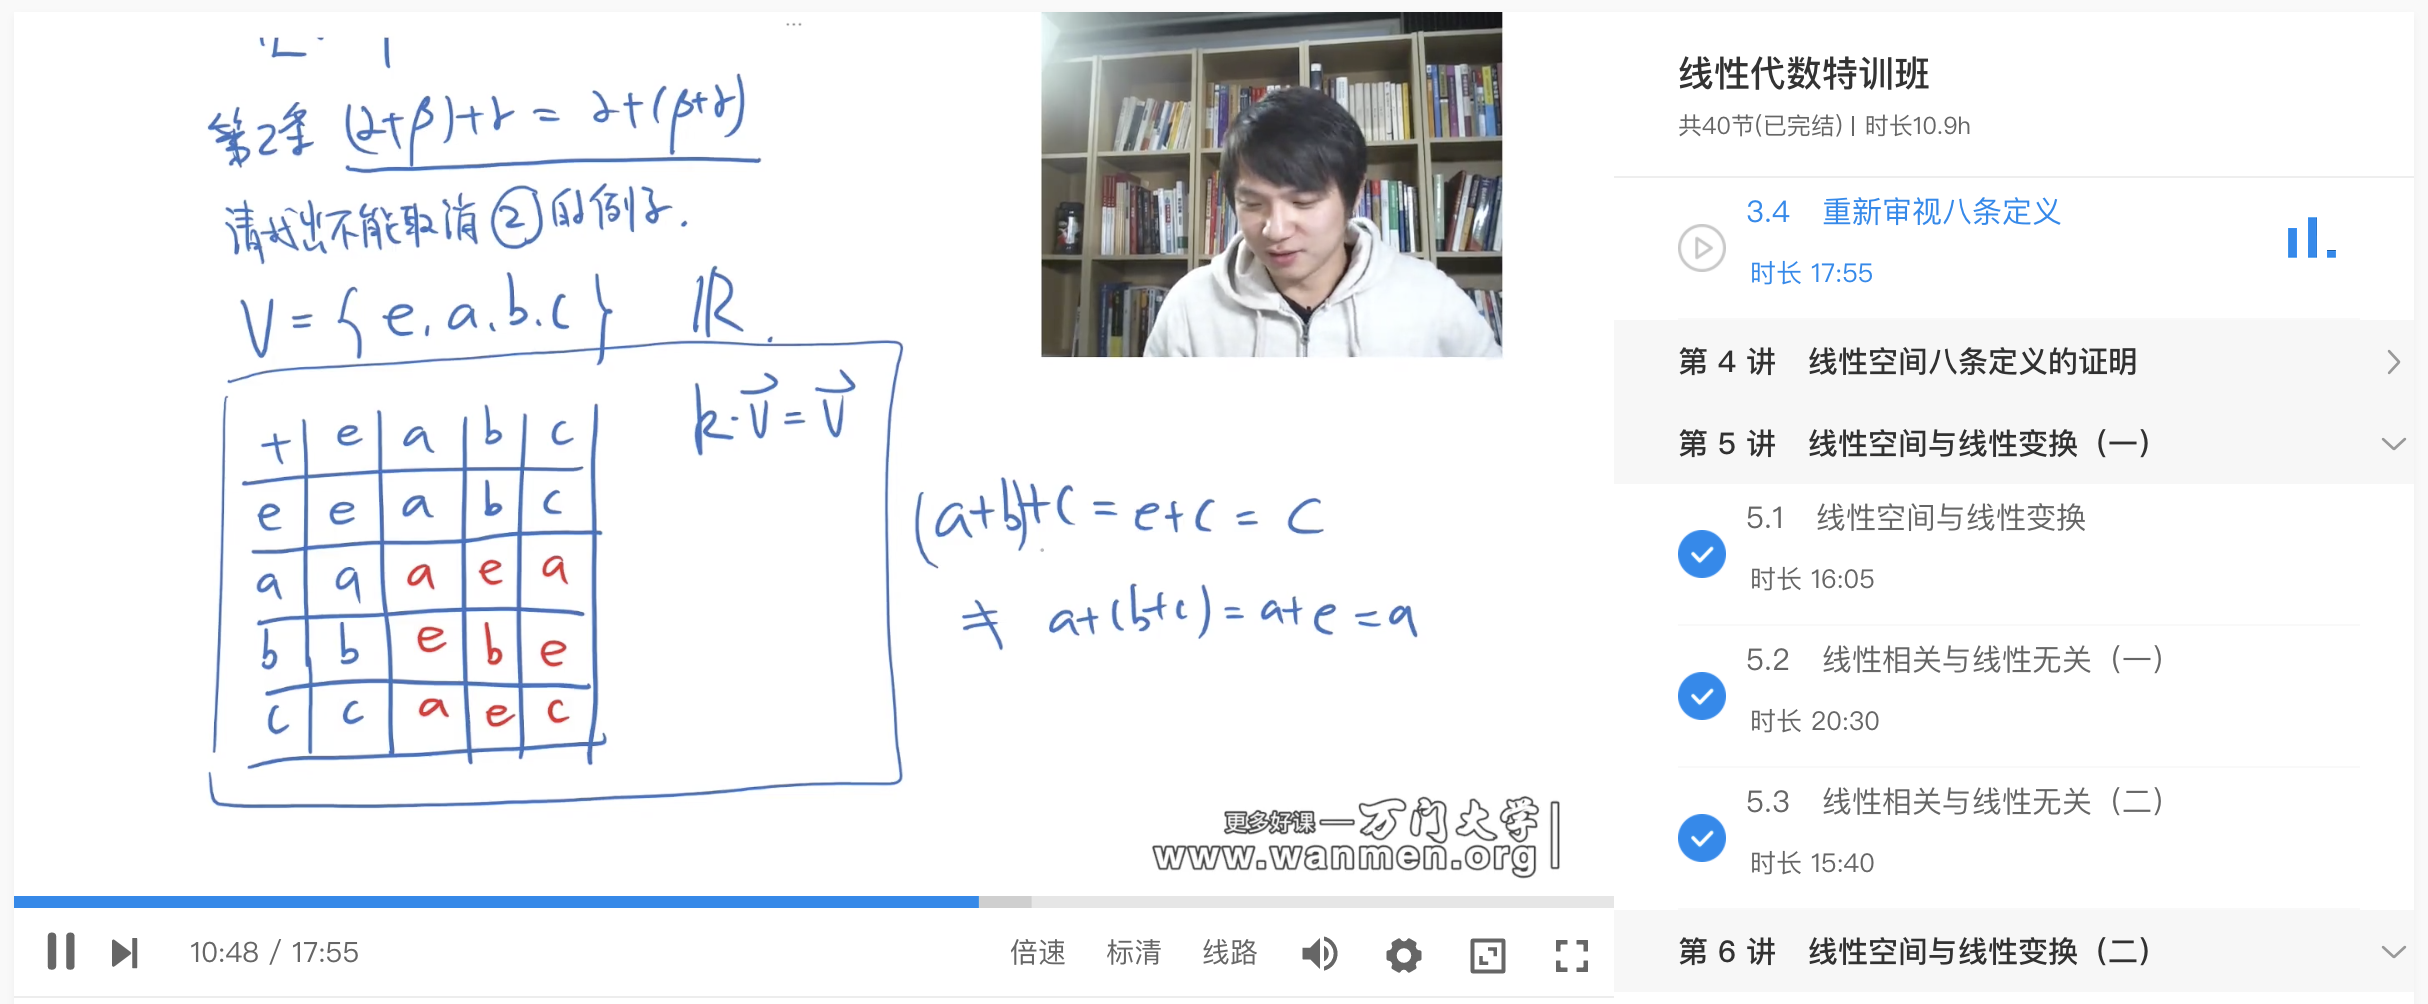 第2条 (α+β)+γ = α+(β+γ)
请找出不能取消②的例子.
V = { e, a, b, c } ℝ
k·v⃗ = v⃗
+ e a b c
e e a b c
a a a e a
b b e b e
c c a e c
(a+b)+c = e+c = c
≠ a+(b+c) = a+e = a
更多好课—万门大学
www.wanmen.org
10:48 / 17:55
倍速 标清 线路
线性代数特训班
共40节(已完结) | 时长10.9h
3.4 重新审视八条定义
时长 17:55
第 4 讲 线性空间八条定义的证明
第 5 讲 线性空间与线性变换（一）
5.1 线性空间与线性变换
时长 16:05
5.2 线性相关与线性无关（一）
时长 20:30
5.3 线性相关与线性无关（二）
时长 15:40
第 6 讲 线性空间与线性变换（二）